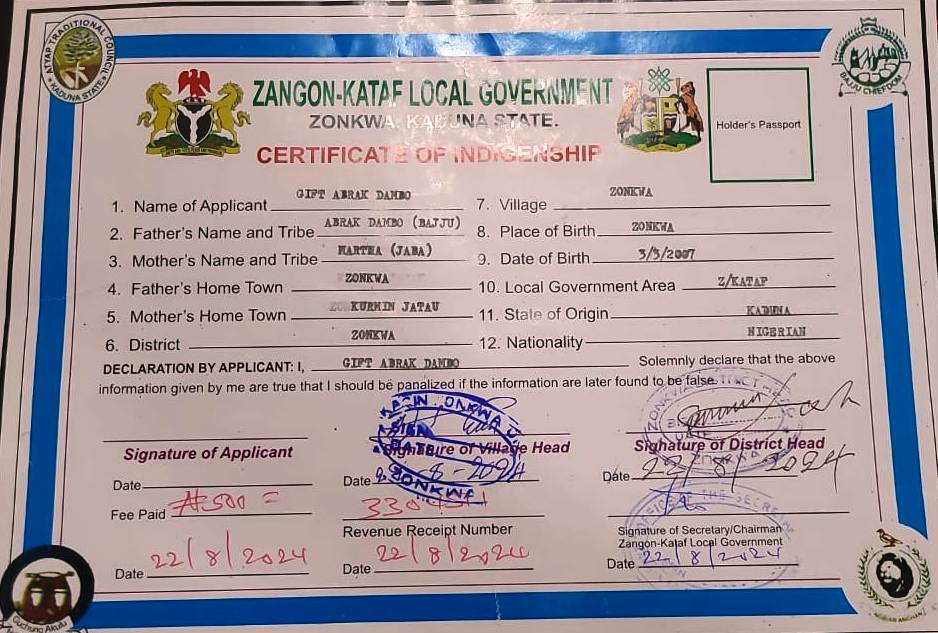 ATYAP TRADITIONAL COUNCIL
KADUNA STATE
BAJJU CHIEFDOM
ZANGON-KATAF LOCAL GOVERNMENT
ZONKWA, KADUNA STATE.
CERTIFICATE OF INDIGENSHIP
Holder's Passport
1. Name of Applicant GIFT ABRAK DAMBO
2. Father's Name and Tribe ABRAK DAMBO (BAJJU)
3. Mother's Name and Tribe MARTHA (JABA)
4. Father's Home Town ZONKWA
5. Mother's Home Town KURMIN JATAU
6. District ZONKWA
7. Village ZONKWA
8. Place of Birth ZONKWA
9. Date of Birth 3/3/2007
10. Local Government Area Z/KATAF
11. State of Origin KADUNA
12. Nationality NIGERIAN
DECLARATION BY APPLICANT: I, GIFT ABRAK DAMBO Solemnly declare that the above
information given by me are true that I should be panalized if the information are later found to be false.
Signature of Applicant
Date
Fee Paid ₦500 =
Date 22/8/2024
ZONKWA
SIGN
DATE
ZONKWA
Signature of Village Head
Date -8-2024
Revenue Receipt Number
Date 22/8/2024
Signature of District Head
Date 22/8/2024
OFFICE OF THE SECRETARY
Signature of Secretary/Chairman
Zangon-Kataf Local Government
Date 22/8/2024
Guchung Akulu